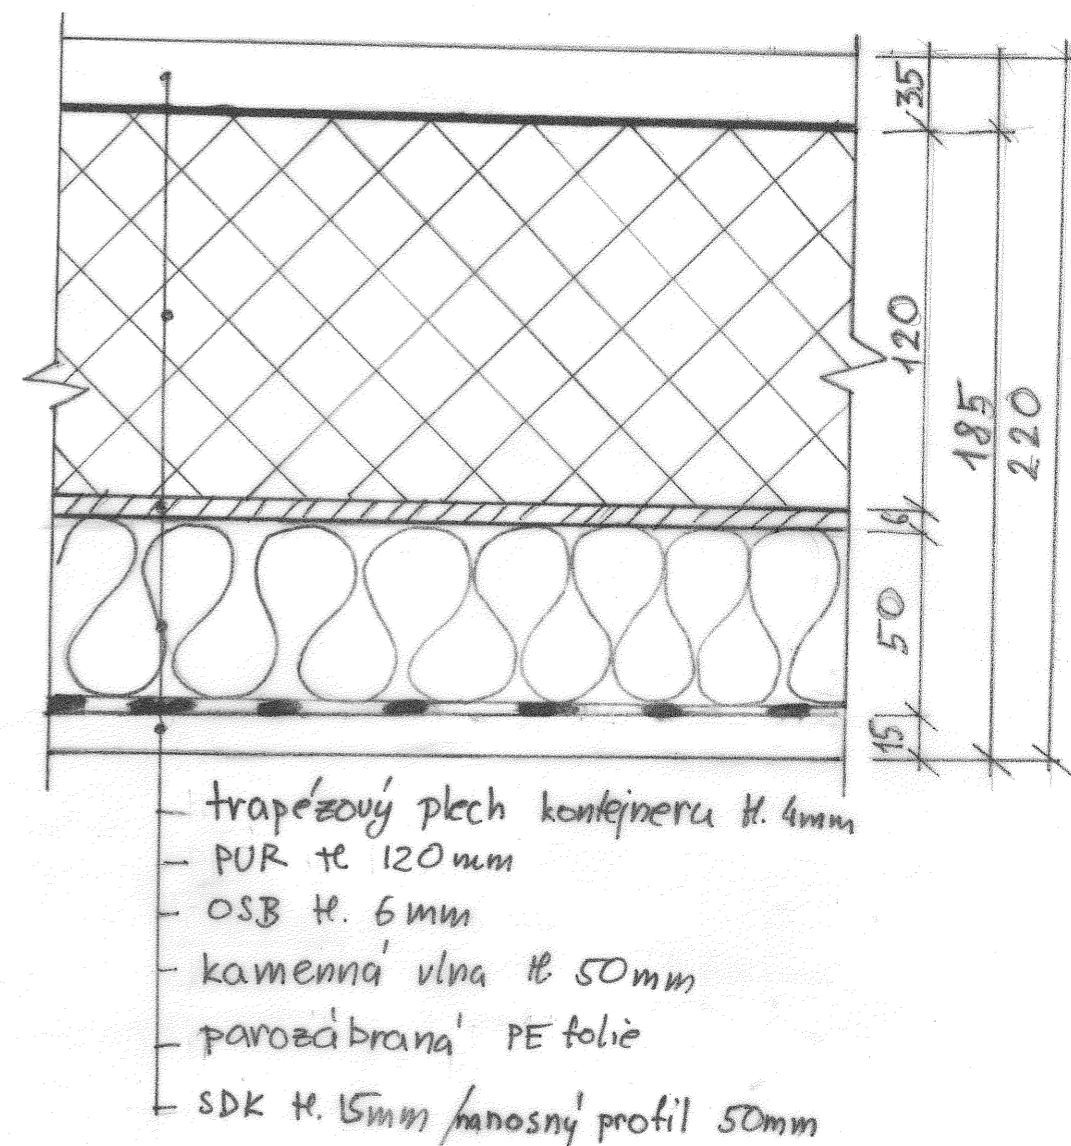 35
120
185
220
6
50
15
trapézový plech kontejneru tl. 4mm
PUR tl 120mm
OSB tl. 6mm
kamenná vlna tl 50mm
parozábraná PE folie
SDK tl. 15mm /nanosný profil 50mm